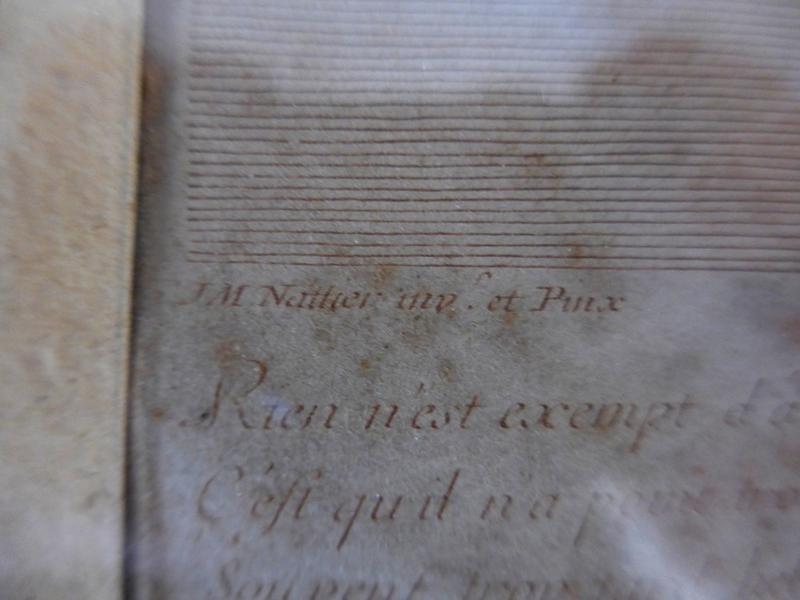 J M Nattier inv.^t et Pinx
Rien n'est exempt d'a
C'est qu'il n'a point
Souvent